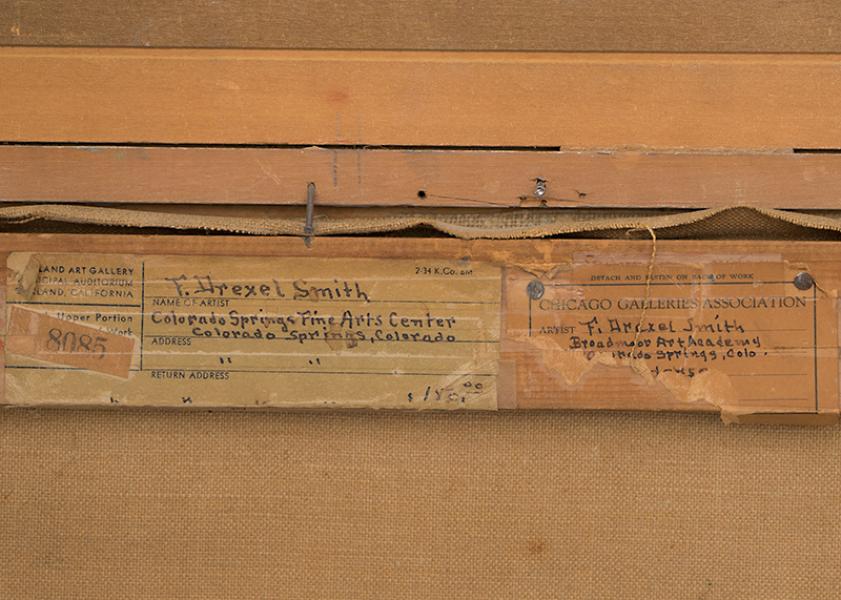 LAND ART GALLERY
CIPAL AUDITORIUM
LAND, CALIFORNIA
Upper Portion
Work
8085
2-34 K.Co. 6M
F. Drexel Smith
NAME OF ARTIST
Colorado Springs Fine Arts Center
Colorado Springs, Colorado
ADDRESS
" "
RETURN ADDRESS
" "
DETACH AND FASTEN ON BACK OF WORK
CHICAGO GALLERIES ASSOCIATION
ARTIST F. Drexel Smith
Broadmoor Art Academy
Springs, Colo.